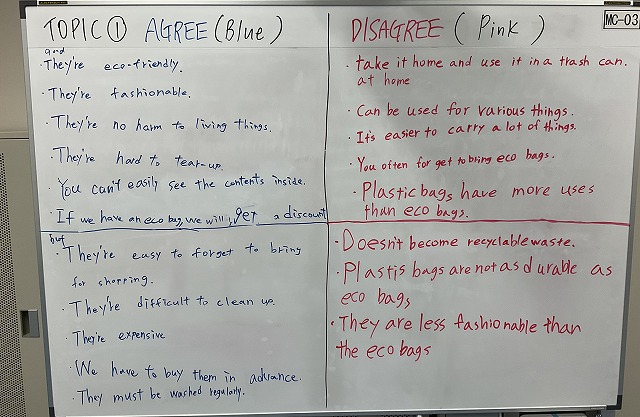 TOPIC ① AGREE (Blue)
good
・They're eco-friendly.
・They're fashionable.
・They're no harm to living things.
・They're hard to tear-up.
・You can't easily see the contents inside.
・If we have an eco bag, we will get a discount
but
・They're easy to forget to bring
for shopping.
・They're difficult to clean up.
・They're expensive
・We have to buy them in advance.
・They must be washed regularly.
DISAGREE (Pink)
MC-03
・take it home and use it in a trash can.
at home
・Can be used for various things.
・It's easier to carry a lot of things.
・You often for get to bring eco bags.
・Plastic bags have more uses
than eco bags.
・Doesn't become recyclable waste.
・Plastis bags are not as durable as
eco bags
・They are less fashionable than
the eco bags